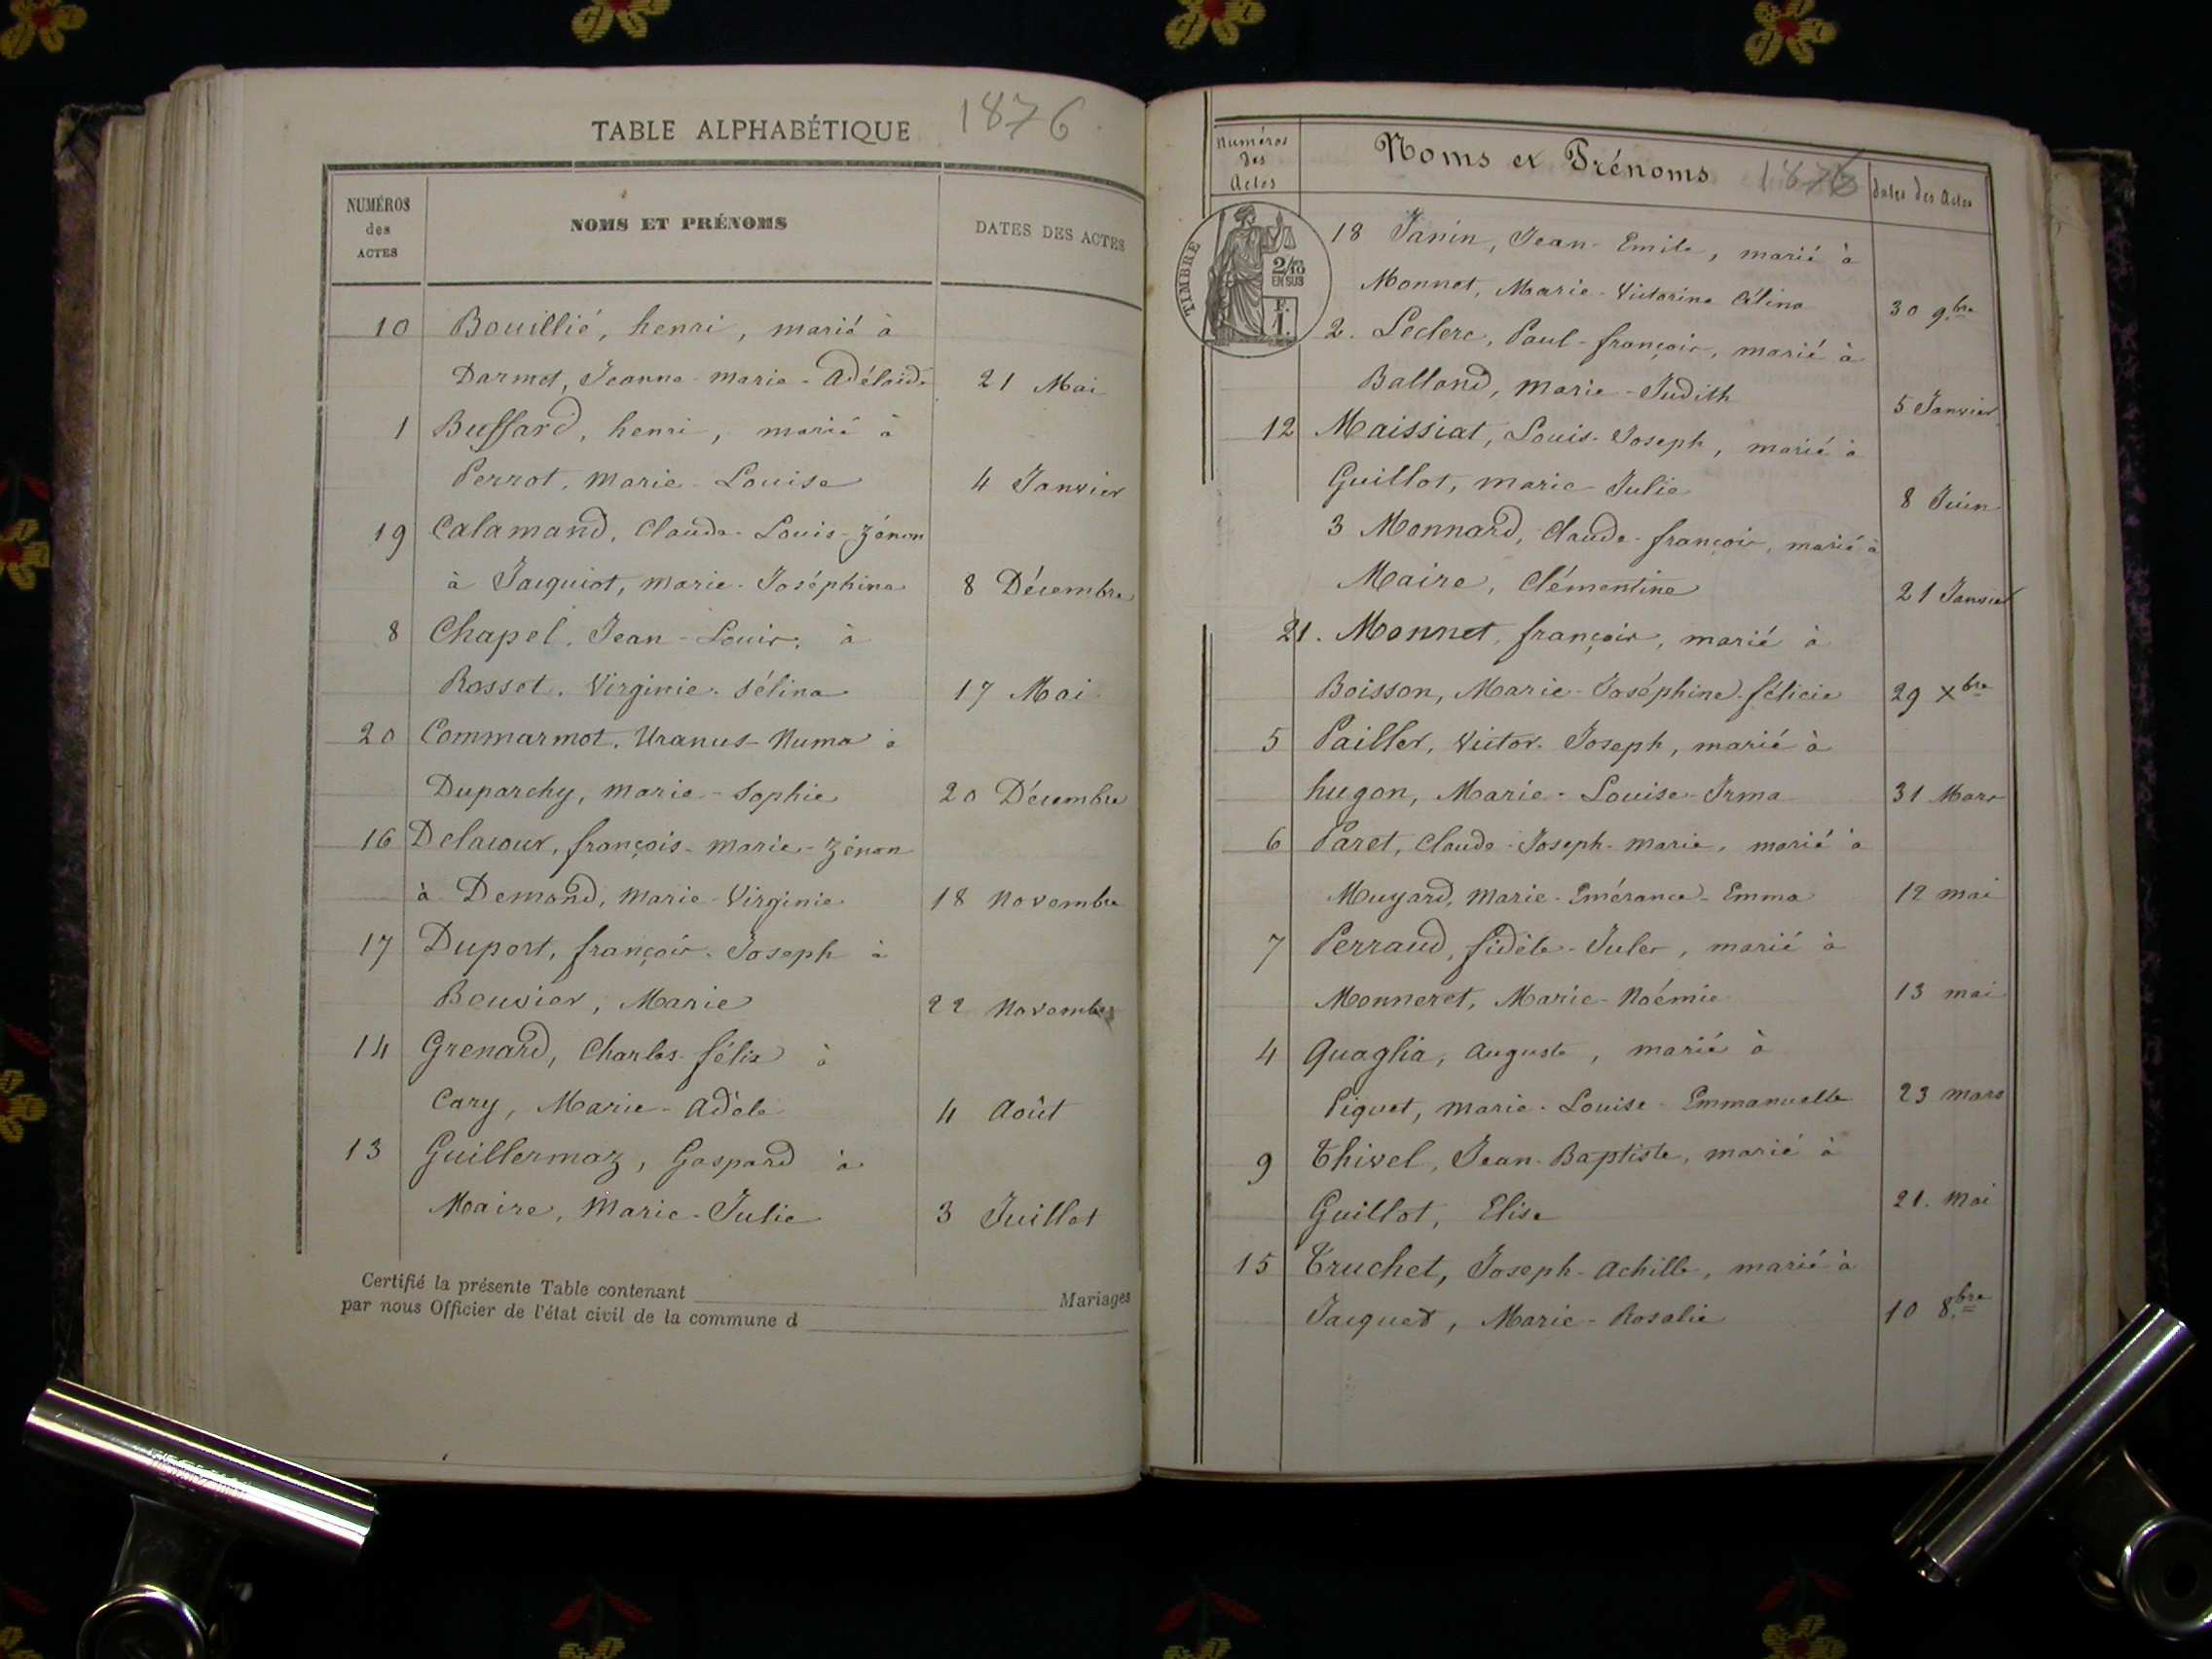 TABLE ALPHABÉTIQUE 1876
NUMÉROS
des
ACTES
NOMS ET PRÉNOMS
DATES DES ACTES
10 Bouillié, henri, marié à
Darmet, Jeanne marie-Adélaïde 21 Mai
1 Buffard, henri, marié à
Perrot, Marie Louise 4 Janvier
19 Calamand, Claude-Louis-Zénon
à Jacquiot, marie-Joséphine 8 Décembre
8 Chapel, Jean-Louis, à
Rosset, Virginie-Sélina 17 Mai
20 Commarmot, Uranus-Numa à
Duparchy, marie-Sophie 20 Décembre
16 Delacour, françois-marie-Zénon
à Demond, Marie-Virginie 18 Novembre
17 Duport, françois-Joseph à
Bouvier, Marie 22 Novembre
14 Grenard, Charles-félix à
Cary, Marie-Adèle 4 Août
13 Guillermoz, Gaspard à
Maire, Marie-Julie 3 Juillet
Certifié la présente Table contenant Mariages
par nous Officier de l'état civil de la commune d
Numéros
des
Actes
Noms et Prénoms 1876
dates des Actes
TIMBRE
2/10
EN SUS
F.
1.
18 Janin, Jean-Emile, marié à
Monnet, Marie-Victorine Célina 30 9.bre
2. Leclerc, Paul-françois, marié à
Balland, marie-Judith 5 Janvier
12 Maissiat, Louis-Joseph, marié à
Guillot, marie Julie 8 Juin
3 Monnard, Claude-françois, marié à
Maire, Clémentine 21 Janvier
21. Monnet, françois, marié à
Boisson, Marie-Joséphine-félicie 29 Xbre
5 Pailler, Victor-Joseph, marié à
hugon, Marie-Louise-Irma 31 Mars
6 Paret, Claude-Joseph-marie, marié à
Muyard, Marie-Emérance-Emma 12 mai
7 Perraud, fidèle-Jules, marié à
Monneret, Marie-Noémie 13 mai
4 Quaglia, Auguste, marié à
Piquet, marie-Louise-Emmanuelle 23 mars
9 Thivel, Jean-Baptiste, marié à
Guillot, Elise 21. Mai
15 Truchet, Joseph-Achille, marié à
Jacquet, Marie-Rosalie 10 8.bre